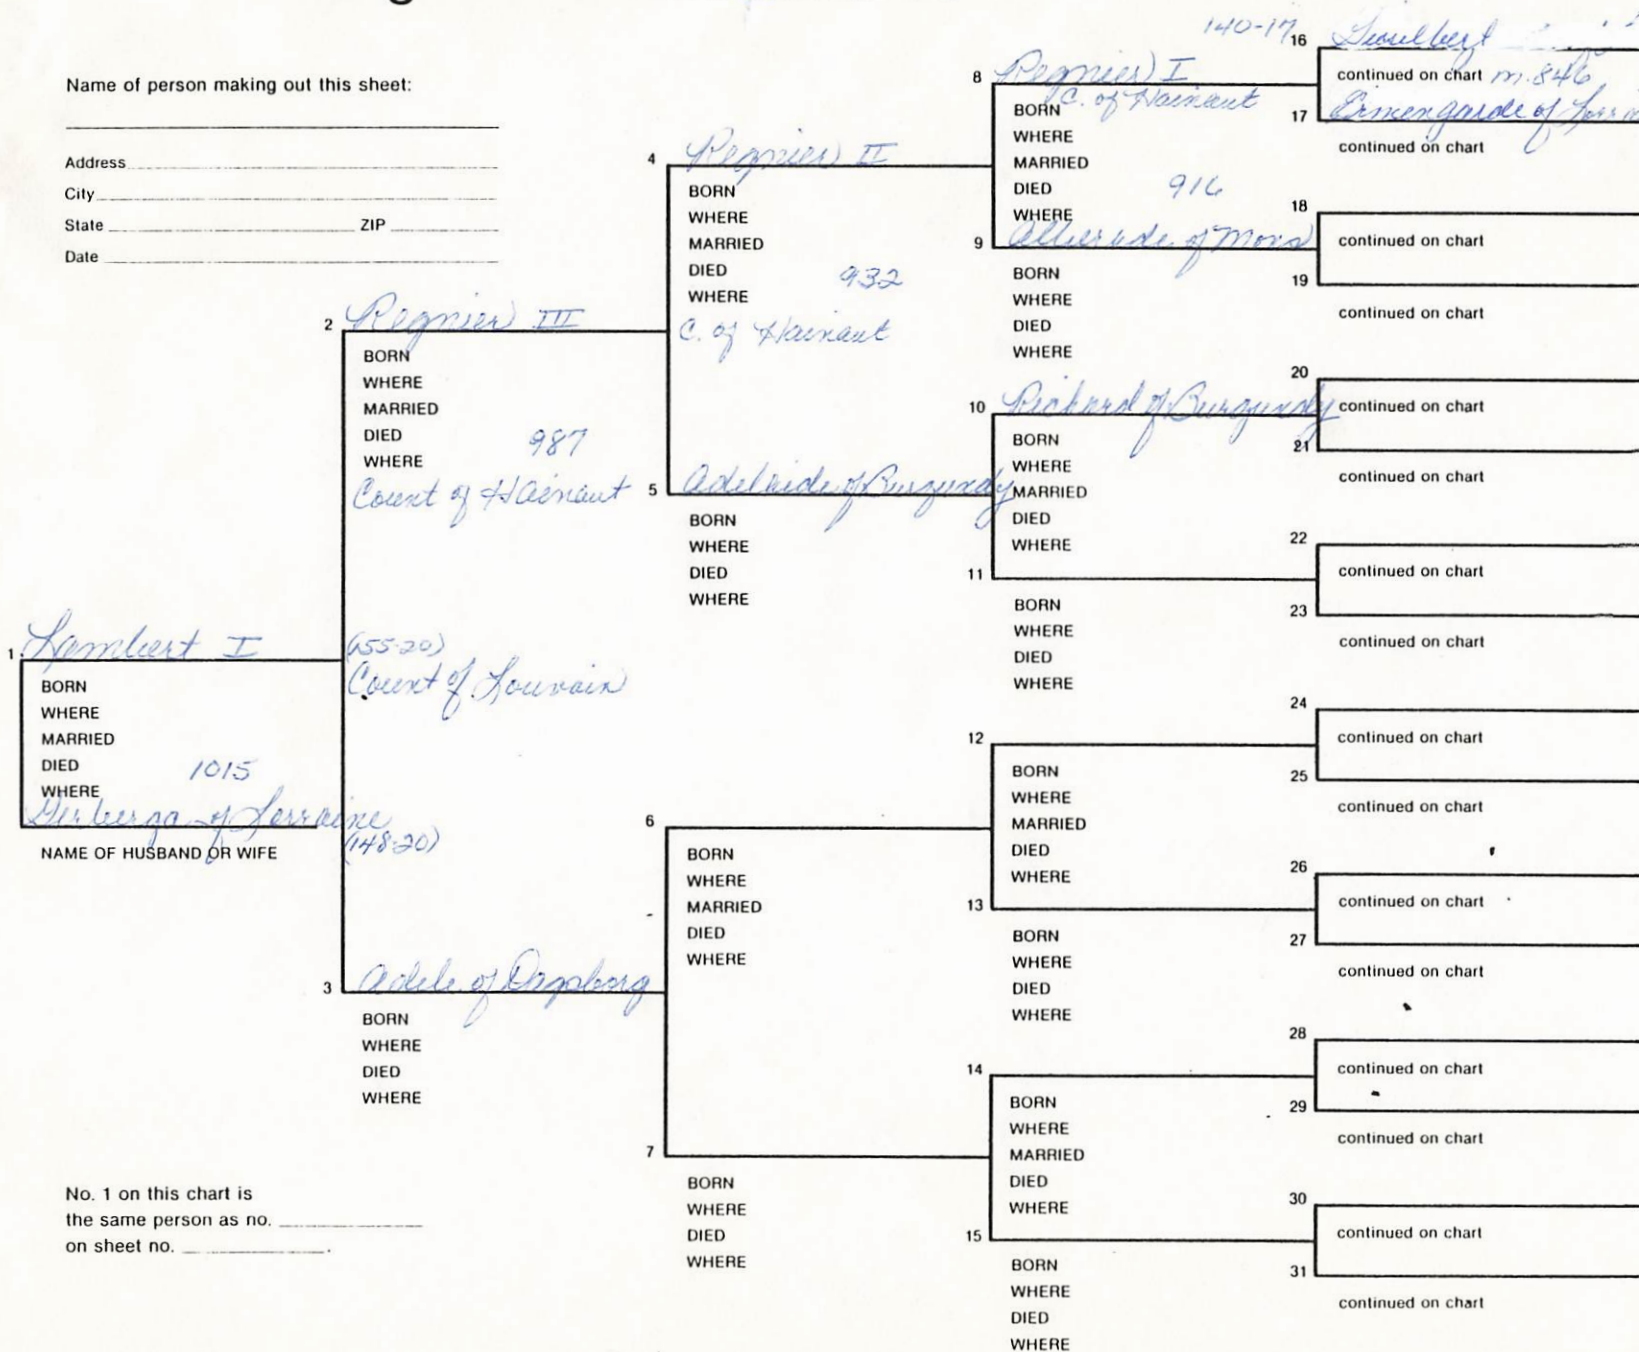 Name of person making out this sheet:
Address
City
State ZIP
Date
1 Lambert I
(155-20)
Count of Louvain
BORN
WHERE
MARRIED
DIED 1015
WHERE
Gerberga of Lorraine
(148-20)
NAME OF HUSBAND OR WIFE
2 Regnier III
BORN
WHERE
MARRIED
DIED 987
WHERE
Count of Hainaut
3 Adele of Dagsborg
BORN
WHERE
DIED
WHERE
4 Regnier II
BORN
WHERE
MARRIED
DIED 932
WHERE
C. of Hainaut
5 Adelaide of Burgundy
BORN
WHERE
DIED
WHERE
6
BORN
WHERE
MARRIED
DIED
WHERE
7
BORN
WHERE
DIED
WHERE
8 Regnier I
C. of Hainaut
BORN
WHERE
MARRIED
DIED 916
WHERE
9 of Mons
BORN
WHERE
DIED
WHERE
10 Richard of Burgundy
BORN
WHERE
MARRIED
DIED
WHERE
11
BORN
WHERE
DIED
WHERE
12
BORN
WHERE
MARRIED
DIED
WHERE
13
BORN
WHERE
DIED
WHERE
14
BORN
WHERE
MARRIED
DIED
WHERE
15
BORN
WHERE
DIED
WHERE
140-17
16
continued on chart m. 846
17 Ermengarde of
continued on chart
18
continued on chart
19
continued on chart
20
continued on chart
21
continued on chart
22
continued on chart
23
continued on chart
24
continued on chart
25
continued on chart
26
continued on chart
27
continued on chart
28
continued on chart
29
continued on chart
30
continued on chart
31
continued on chart
No. 1 on this chart is
the same person as no.
on sheet no. .